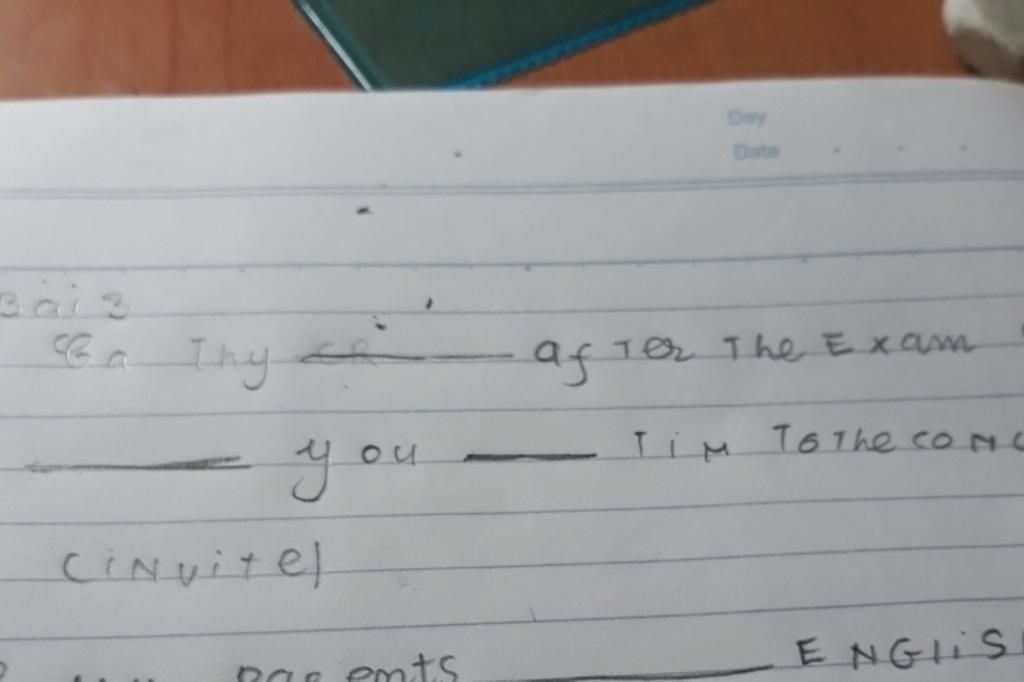 Day
Date
Bài 3
Thy ______ after The Exam
______ you ______ Tim To The conc
(invite)
parents ______ ENGliS